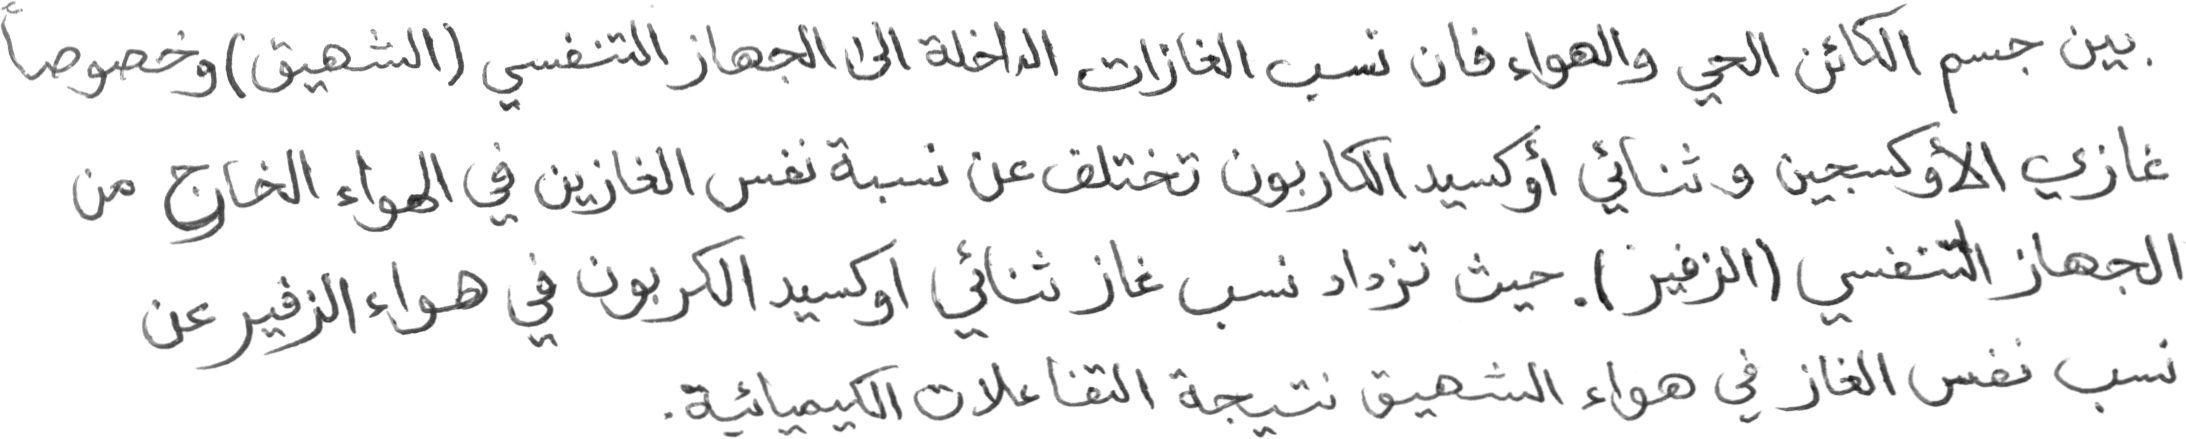 بين جسم الكائن الحي والهواء فان نسب الغازات الداخلة الى الجهاز التنفسي (الشهيق) وخصوصاً
غازي الأوكسجين و ثنائي أوكسيد الكاربون تختلف عن نسبة نفس الغازين في الهواء الخارج من
الجهاز التنفسي (الزفير). حيث تزداد نسب غاز ثنائي اوكسيد الكربون في هواء الزفير عن
نسب نفس الغاز في هواء الشهيق نتيجة التفاعلات الكيميائية.